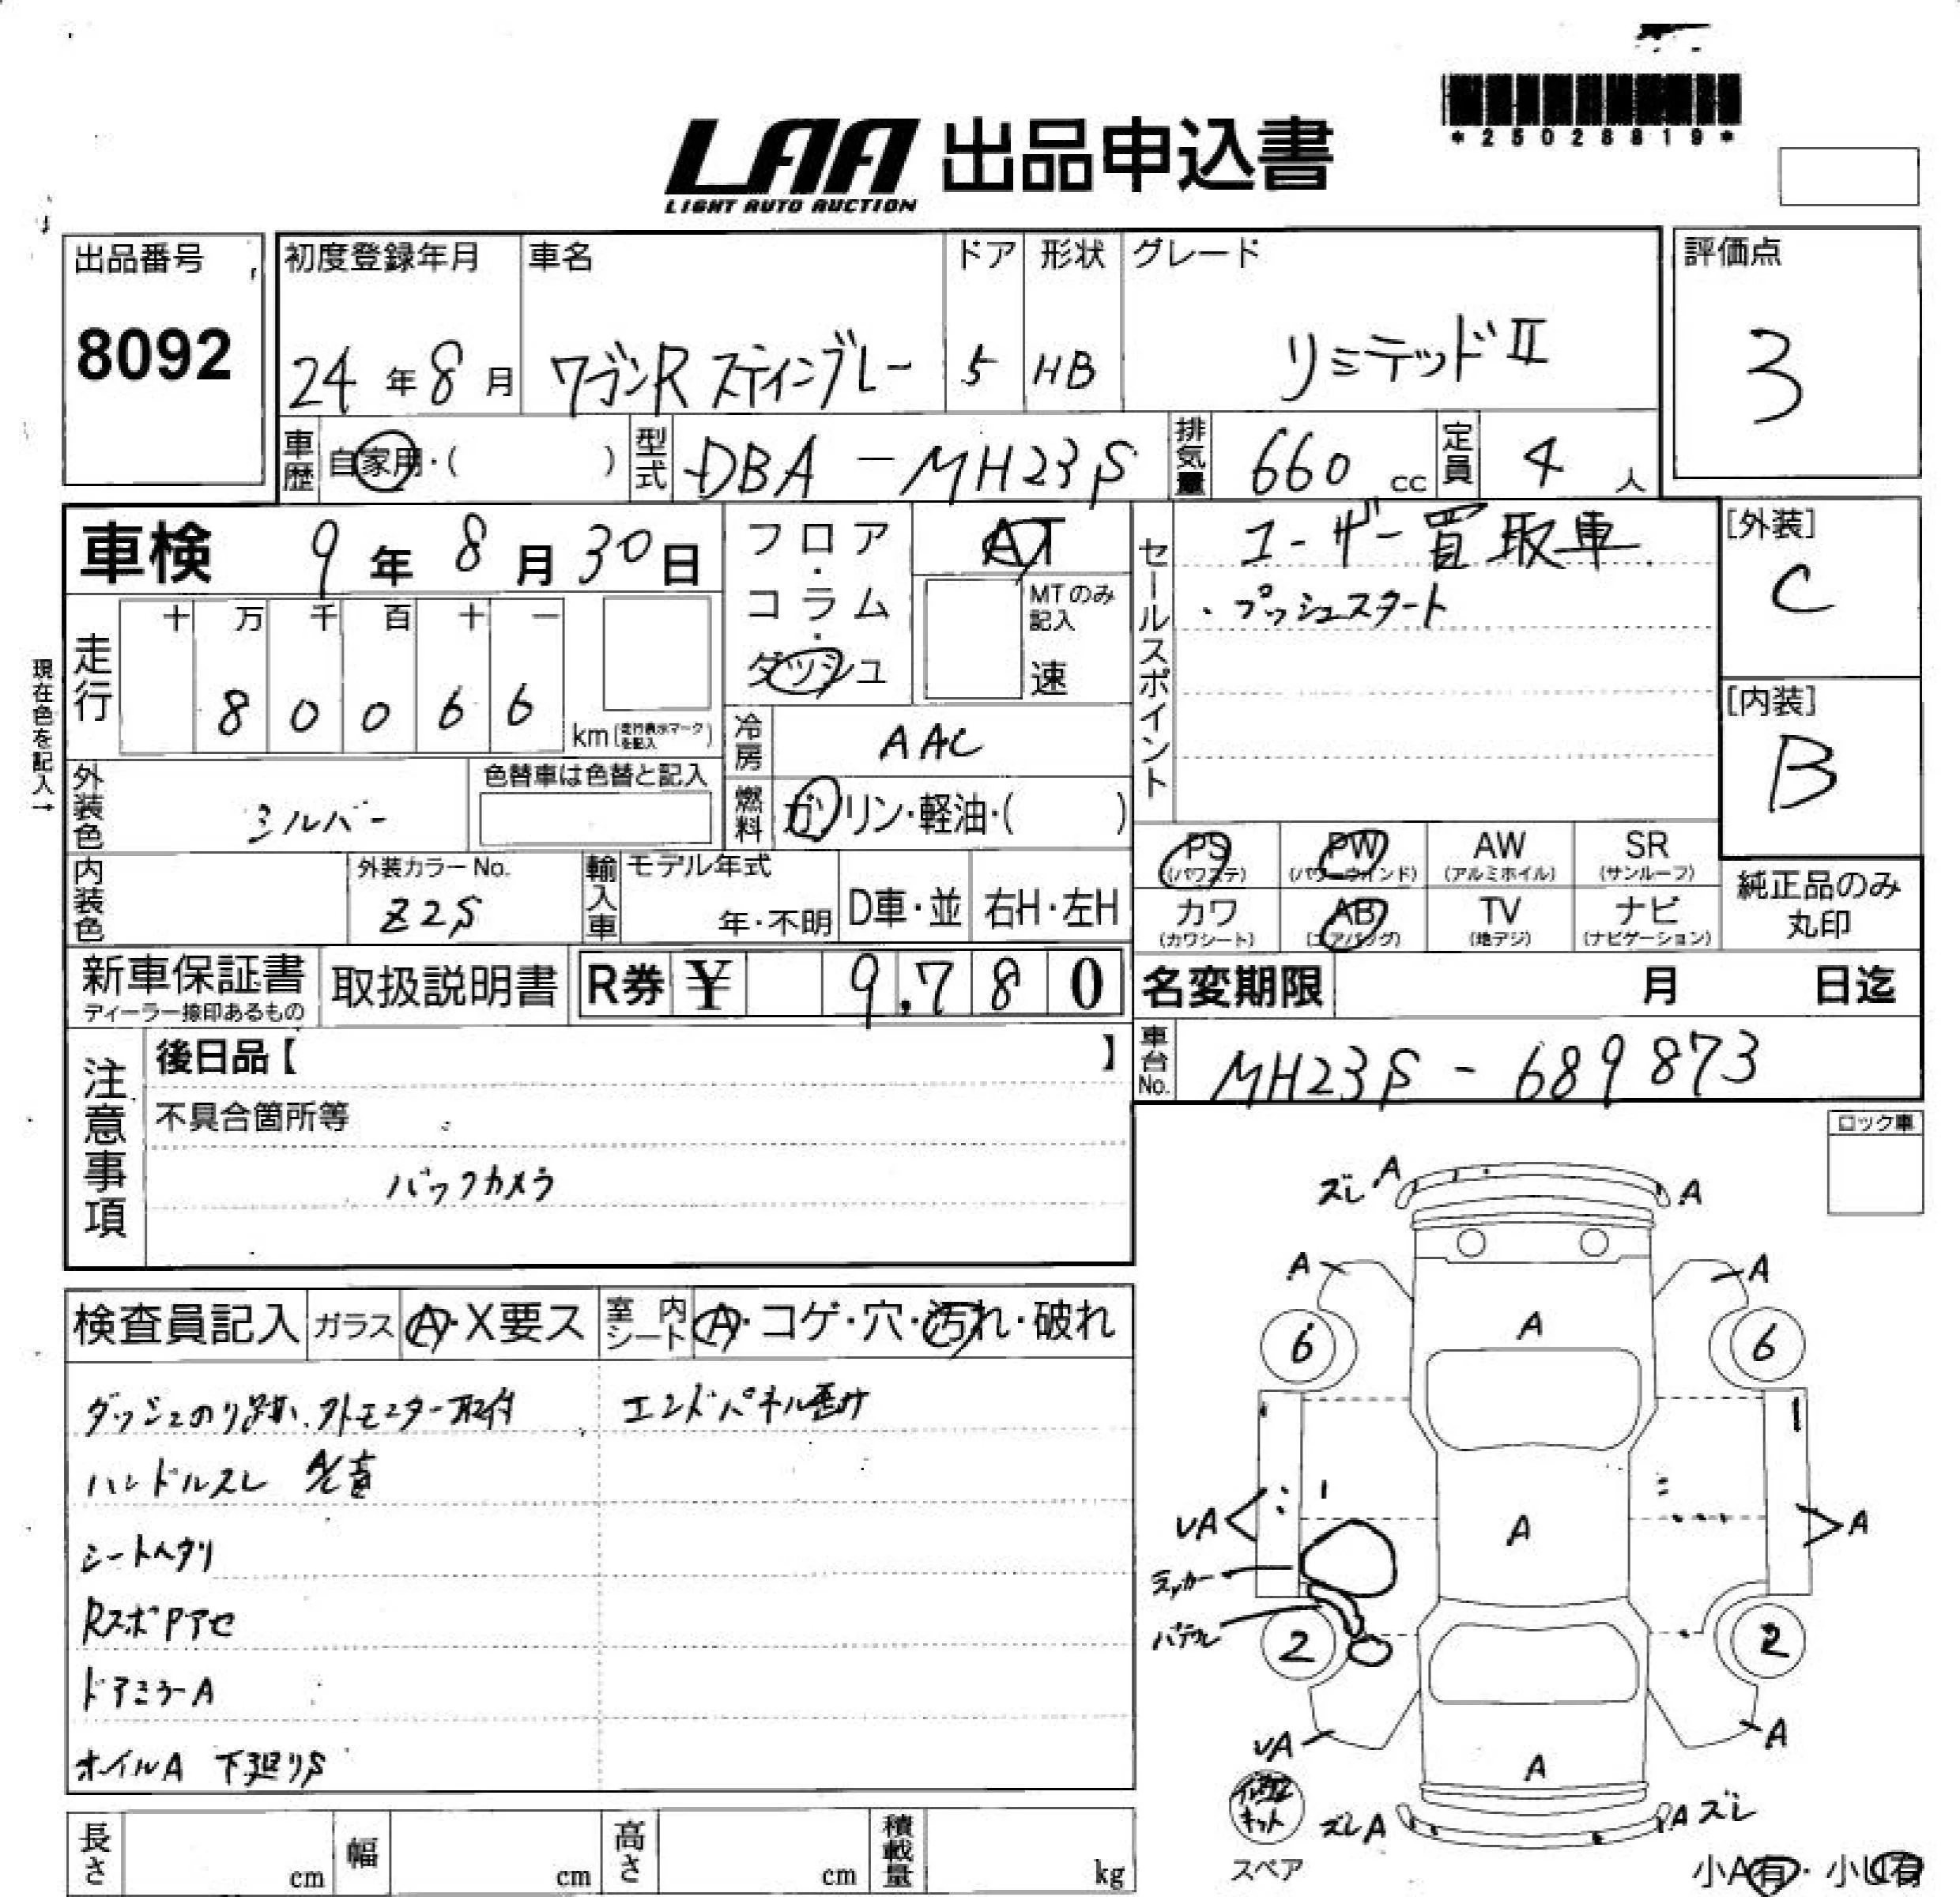 *25028819*
LAA 出品申込書
LIGHT AUTO AUCTION
出品番号
8092
初度登録年月
24年8月
車名
ワゴンR スティングレー
ドア
5
形状
HB
グレード
リミテッドⅡ
評価点
3
車歴
自家用・( )
型式
DBA-MH23S
排気量
660 cc
定員
4 人
車検 9年8月30日
フロア・コラム・ダッシュ
AT
MTのみ記入
速
セールスポイント
ユーザー買取車
・プッシュスタート
[外装]
C
[内装]
B
現在色を記入→
走行
十 万 千 百 十 一
8 0 0 6 6
km(走行表示マークを記入)
冷房
AAC
外装色
シルバー
色替車は色替と記入
燃料
ガソリン・軽油・( )
内装色
外装カラーNo.
Z2S
輸入車
モデル年式
年・不明
D車・並
右H・左H
PS (パワステ)
PW (パワーウインド)
AW (アルミホイル)
SR (サンルーフ)
カワ (カワシート)
AB (エアバッグ)
TV (地デジ)
ナビ (ナビゲーション)
純正品のみ丸印
新車保証書
ディーラー捺印あるもの
取扱説明書
R券 ¥ 9,780
名変期限 月 日迄
車台No.
MH23S-689873
注意事項
後日品【 】
不具合箇所等
バックカメラ
ロック車
検査員記入
ガラス
A・X要ス
室内シート
A・コゲ・穴・汚れ・破れ
ダッシュのり跡、外モニター取付
エンドパネル歪み
ハンドルスレ
シートヘタリ
RスポPアセ
ドアミラーA
オイルA 下廻りS
ズレ A
A
A
A
A
6
6
VA
A
A
ラッカー
2
2
VA
A
A
キット
スペア
ズレA
Aズレ
小A有・小U有
長さ cm
幅 cm
高さ cm
積載量 kg